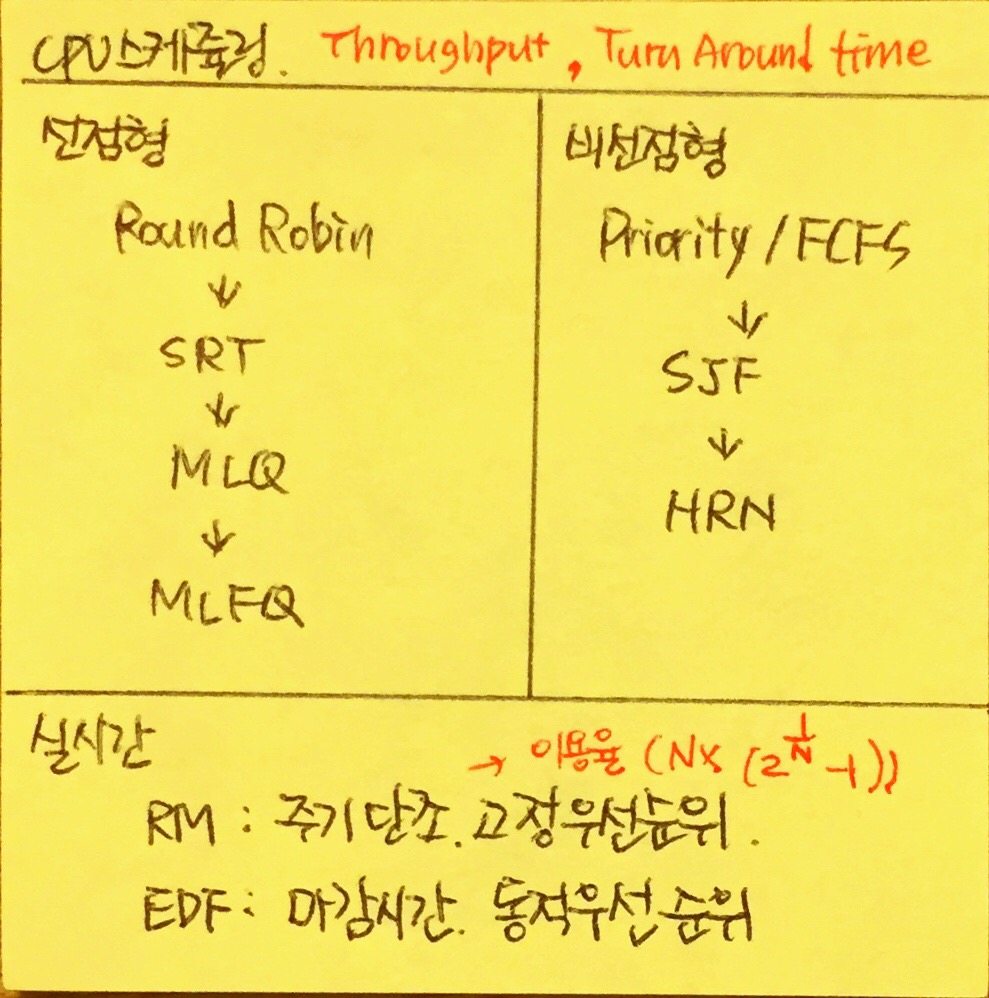 CPU스케쥴링. Throughput, Turn Around time
선점형
Round Robin
↓
SRT
↓
MLQ
↓
MLFQ
비선점형
Priority / FCFS
↓
SJF
↓
HRN
실시간
→ 이용율 (N× (2^(1/N) -1))
RM : 주기단조. 고정우선순위.
EDF : 마감시간. 동적우선순위